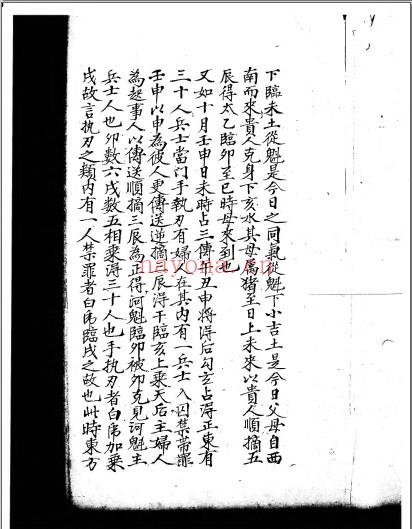 下臨未土從魁是今日之同氣從魁下小吉土是今日父母自西
南而來貴人克身下亥水其母属猪至日上未來以貴人順摘五
辰得太乙臨卯至巳時母來到也
又如十月壬申日未時占三傳丑申將得后勾玄占得正東有
三十人兵士當门手执刃有婦人在其內有一兵士入囚禁帶罪
壬申以申為彼人更傳送逆摘辰得干臨亥上乘天后主婦人
為起事人以傳送順摘三辰為正得河魁臨卯被卯克見河魁主
兵士人也卯數六戌數五相乘得三十人也手执刃者白虎加乘
戌故言执刃之類內有一人禁罪者白虎臨戌之故也此時東方
nayona.cn